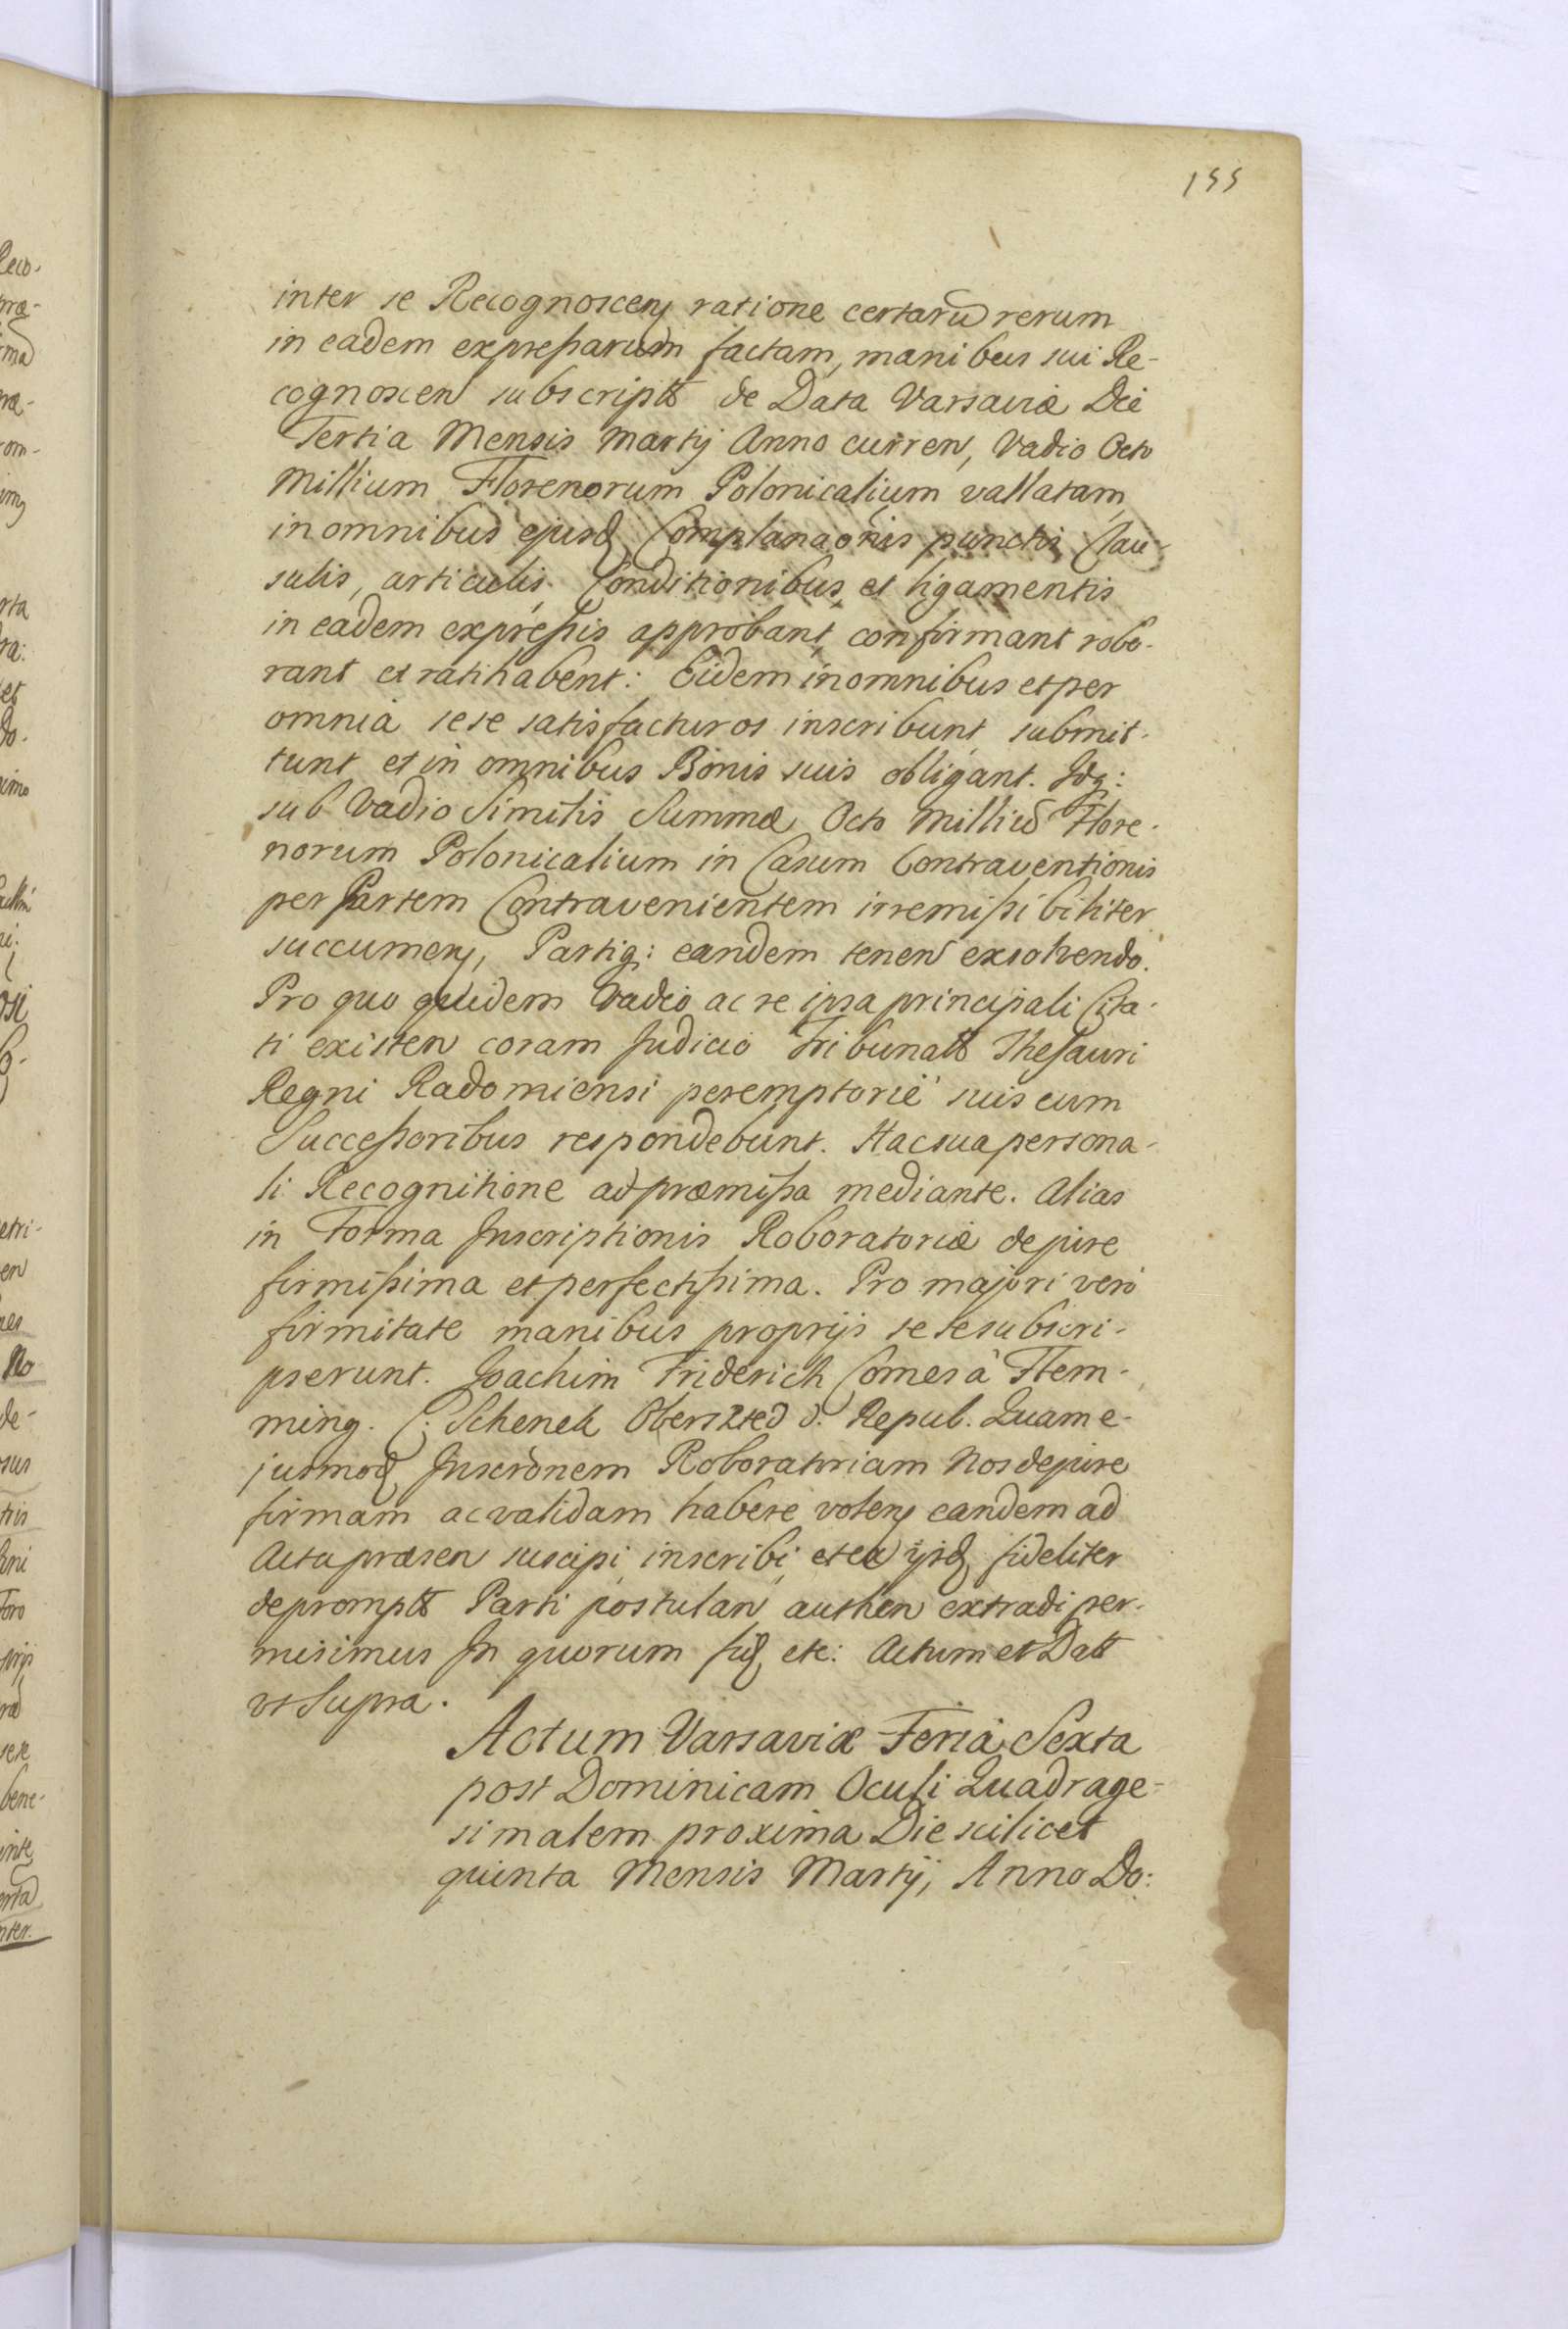 155
inter se Recognoscen ratione certarũ rerum
in eadem expressarum factam, manibus sui Re-
cognoscen subscript de Data Varsaviæ Die
Tertia Mensis Martij Anno curren, Vadio Octo
Millium Florenorum Polonicalium vallatam,
in omnibus ejusd Complanaonis punctis Clau-
sulis, articulis Conditionibus et ligamentis
in eadem expressis approbant, confirmant robo-
rant et ratihabent: Eidem in omnibus et per
omnia sese satisfacturos inscribunt, submit-
tunt et in omnibus Bonis suis obligant. Idq:
sub Vadio Similis Summæ Octo Milliũ Flore-
norum Polonicalium in Casum Contraventionis
per Partem Contravenientem irremissibiliter
succumen, Partiq: eandem tenen exolvendo.
Pro quo quidem Vadio ac re ipsa principali Cita-
ti existen coram Judicio Tribunalt Thesauri
Regni Radomiensi peremptorie suis cum
Successoribus respondebunt. Hac sua persona-
li Recognitione ad præmissa mediante. Alias
in Forma Inscriptionis Roboratoriæ de jure
firmissima et perfectissima. Pro majori verò
firmitate manibus proprijs sese subscri-
pserunt. Joachim Friderich Comes à Flem-
ming. C: Schenck Oberszted d. Repub. Quam e-
jusmod Inscrònem Roboratoriam Nos de jure
firmam ac validam habere volen eandem ad
Acta præsen suscipi, inscribi, et ex ijsd fideliter
deprompt Parti postulan authen extradi per-
misimus In quorum fid etc: Actum et Datt
vt Supra.
Actum Varsaviæ Feria Sexta
post Dominicam Oculi Quadrage-
simalem proxima Die scilicet
quinta Mensis Martij, Anno Do: